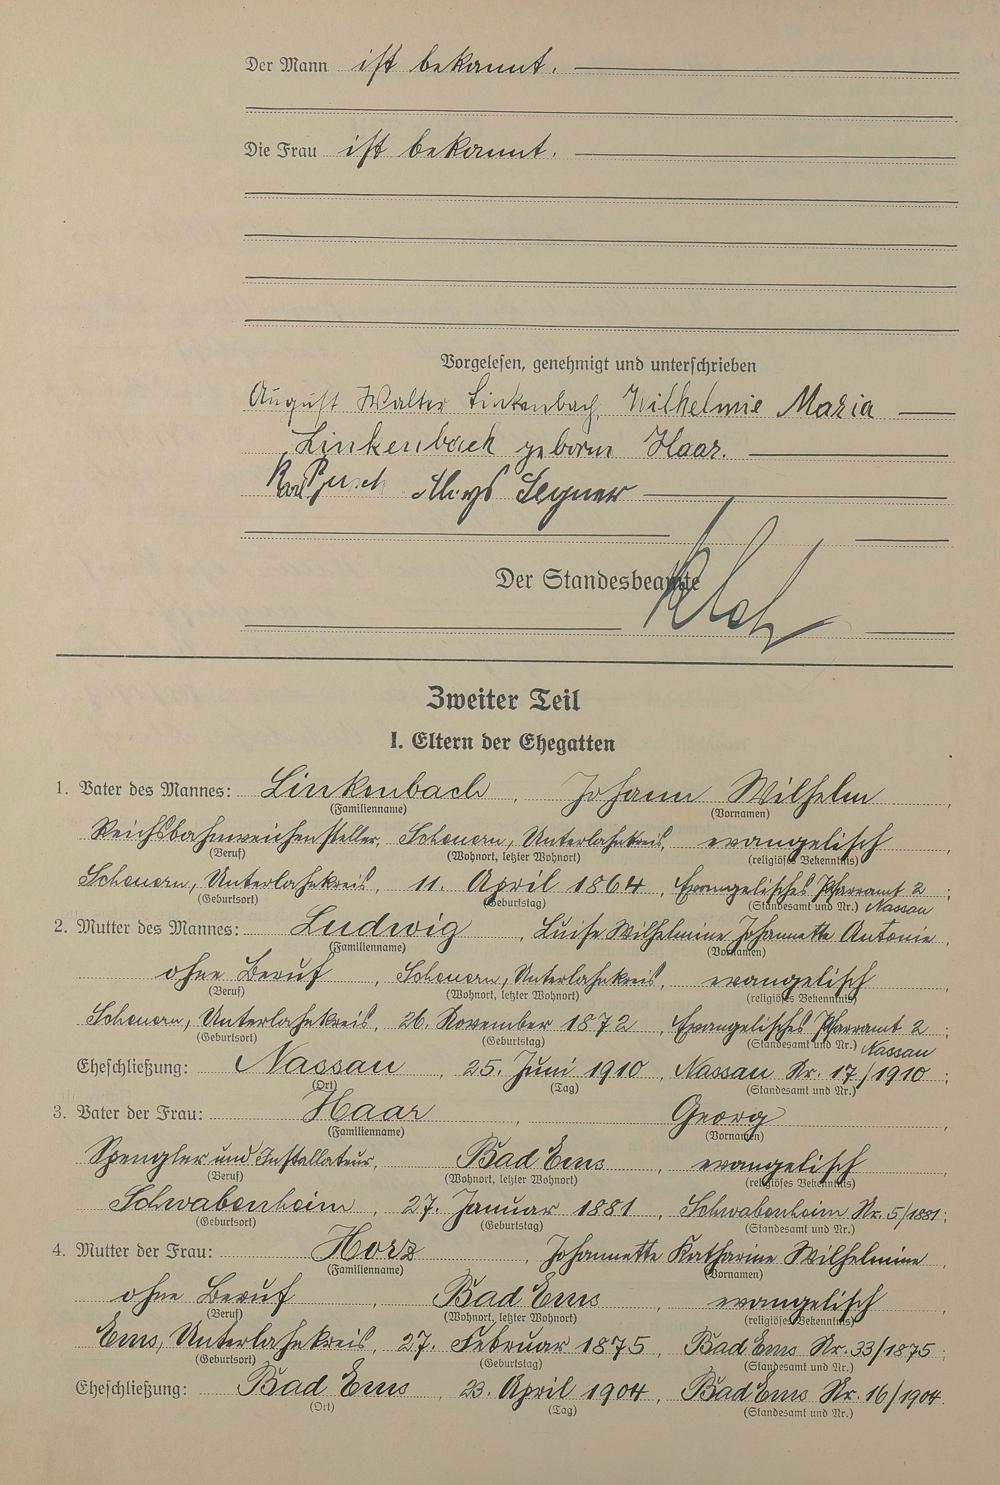 Der Mann ist bekannt.
Die Frau ist bekannt.
Vorgelesen, genehmigt und unterschrieben
August Walter Linkenbach, Wilhelmie Maria
Linkenbach geborne Haar.
Karl Busch Aloys Segner
Der Standesbeamte
Zweiter Teil
I. Eltern der Ehegatten
1. Vater des Mannes: Linkenbach, Johann Wilhelm,
(Familienname) (Vornamen)
Reichsbahnweichensteller, Scheuern, Unterlahnkreis, evangelisch
(Beruf) (Wohnort, letzter Wohnort) (religiöses Bekenntnis)
Scheuern, Unterlahnkreis, 11. April 1864, Evangelisches Pfarramt 2;
(Geburtsort) (Geburtstag) (Standesamt und Nr.) Nassau
2. Mutter des Mannes: Ludwig, Luise Wilhelmine Johannette Antonie,
(Familienname) (Vornamen)
ohne Beruf, Scheuern, Unterlahnkreis, evangelisch
(Beruf) (Wohnort, letzter Wohnort) (religiöses Bekenntnis)
Scheuern, Unterlahnkreis, 26. November 1872, Evangelisches Pfarramt 2;
(Geburtsort) (Geburtstag) (Standesamt und Nr.) Nassau
Eheschließung: Nassau, 25. Juni 1910, Nassau Nr. 17/1910;
(Ort) (Tag) (Standesamt und Nr.)
3. Vater der Frau: Haar, Georg,
(Familienname) (Vornamen)
Spengler und Installateur, Bad Ems, evangelisch,
(Beruf) (Wohnort, letzter Wohnort) (religiöses Bekenntnis)
Schwabenheim, 27. Januar 1881, Schwabenheim Nr. 5/1881;
(Geburtsort) (Geburtstag) (Standesamt und Nr.)
4. Mutter der Frau: Horz, Johannette Katharine Wilhelmine,
(Familienname) (Vornamen)
ohne Beruf, Bad Ems, evangelisch,
(Beruf) (Wohnort, letzter Wohnort) (religiöses Bekenntnis)
Ems, Unterlahnkreis, 27. Februar 1875, Bad Ems Nr. 33/1875;
(Geburtsort) (Geburtstag) (Standesamt und Nr.)
Eheschließung: Bad Ems, 23. April 1904, Bad Ems Nr. 16/1904.
(Ort) (Tag) (Standesamt und Nr.)